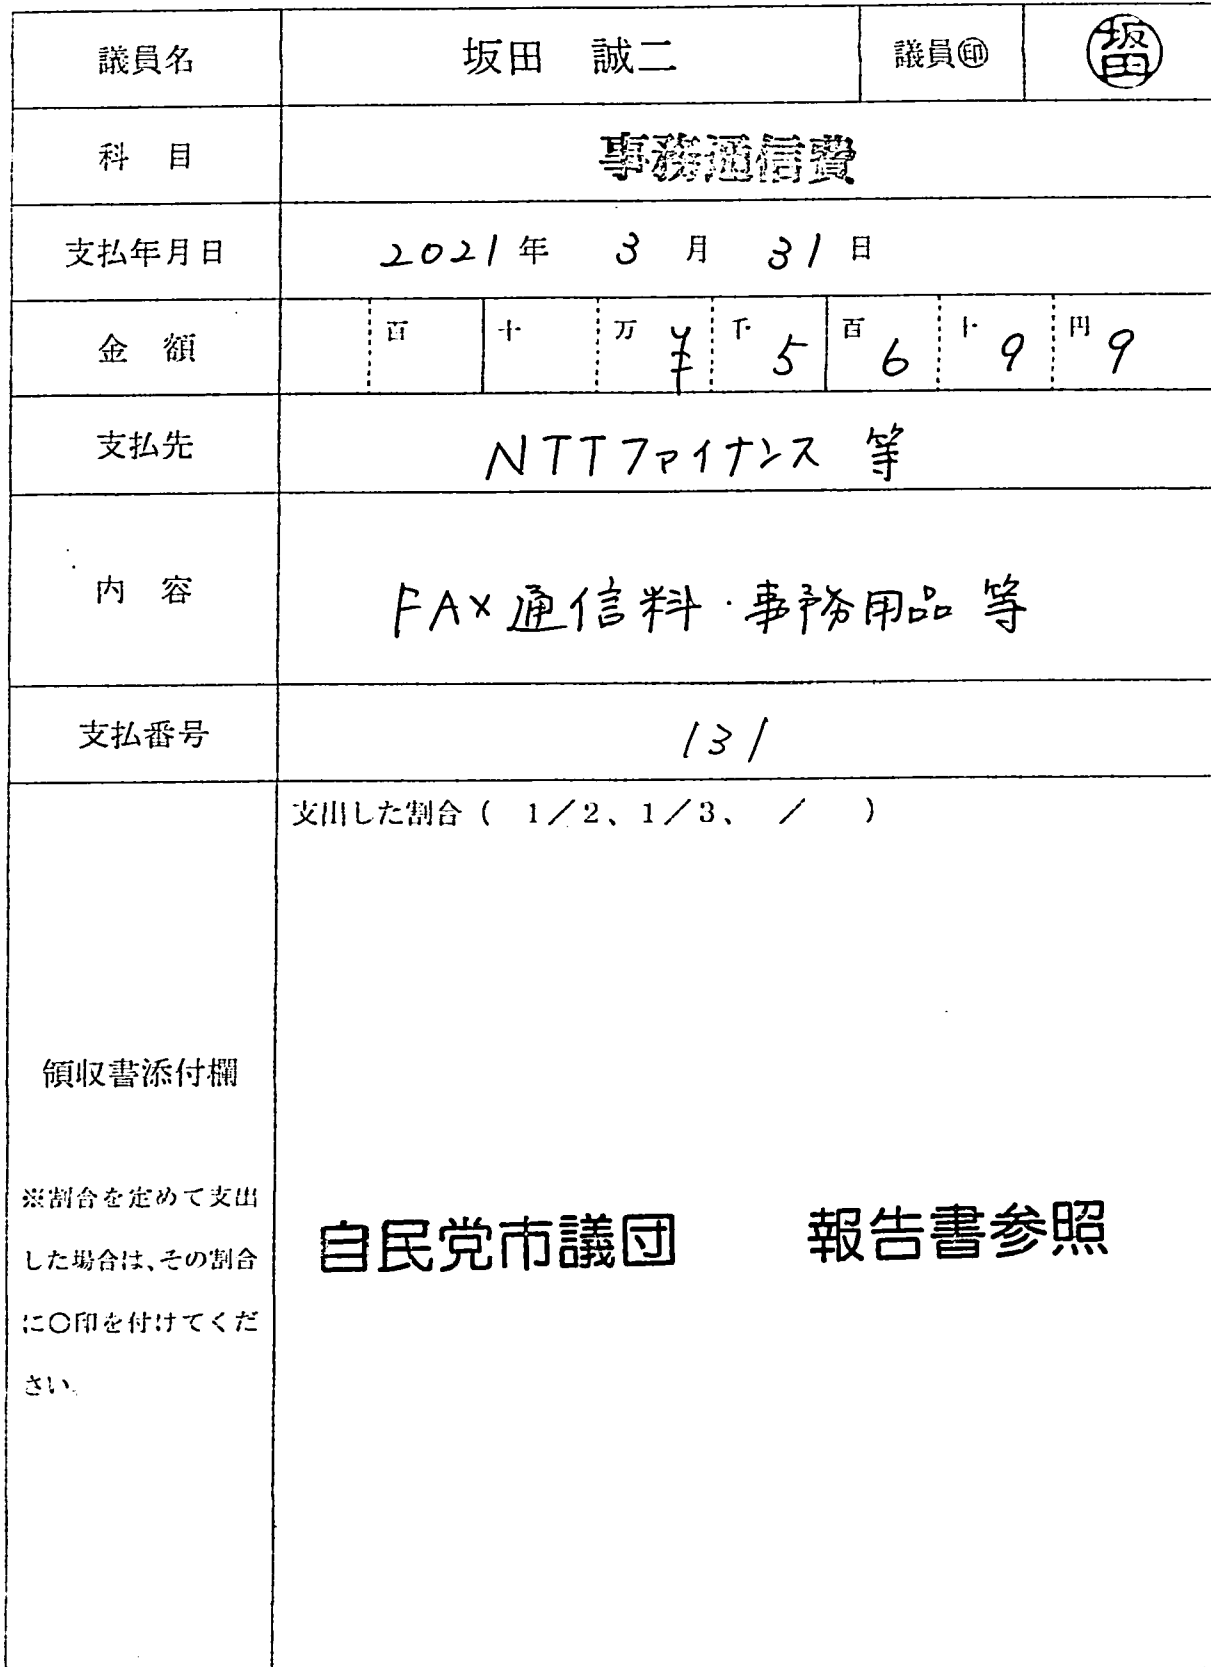 議員名 坂田 誠二 議員㊞ 坂田
科 目 事務通信費
支払年月日 2021年 3月 31日
金 額 百 十 万 ¥ 千 5 百 6 十 9 円 9
支払先 NTTファイナンス 等
内 容 FAX通信料・事務用品 等
支払番号 131
支出した割合( 1/2、1/3、 / )
領収書添付欄
※割合を定めて支出
した場合は、その割合
に○印を付けてくだ
さい。
自民党市議団 報告書参照